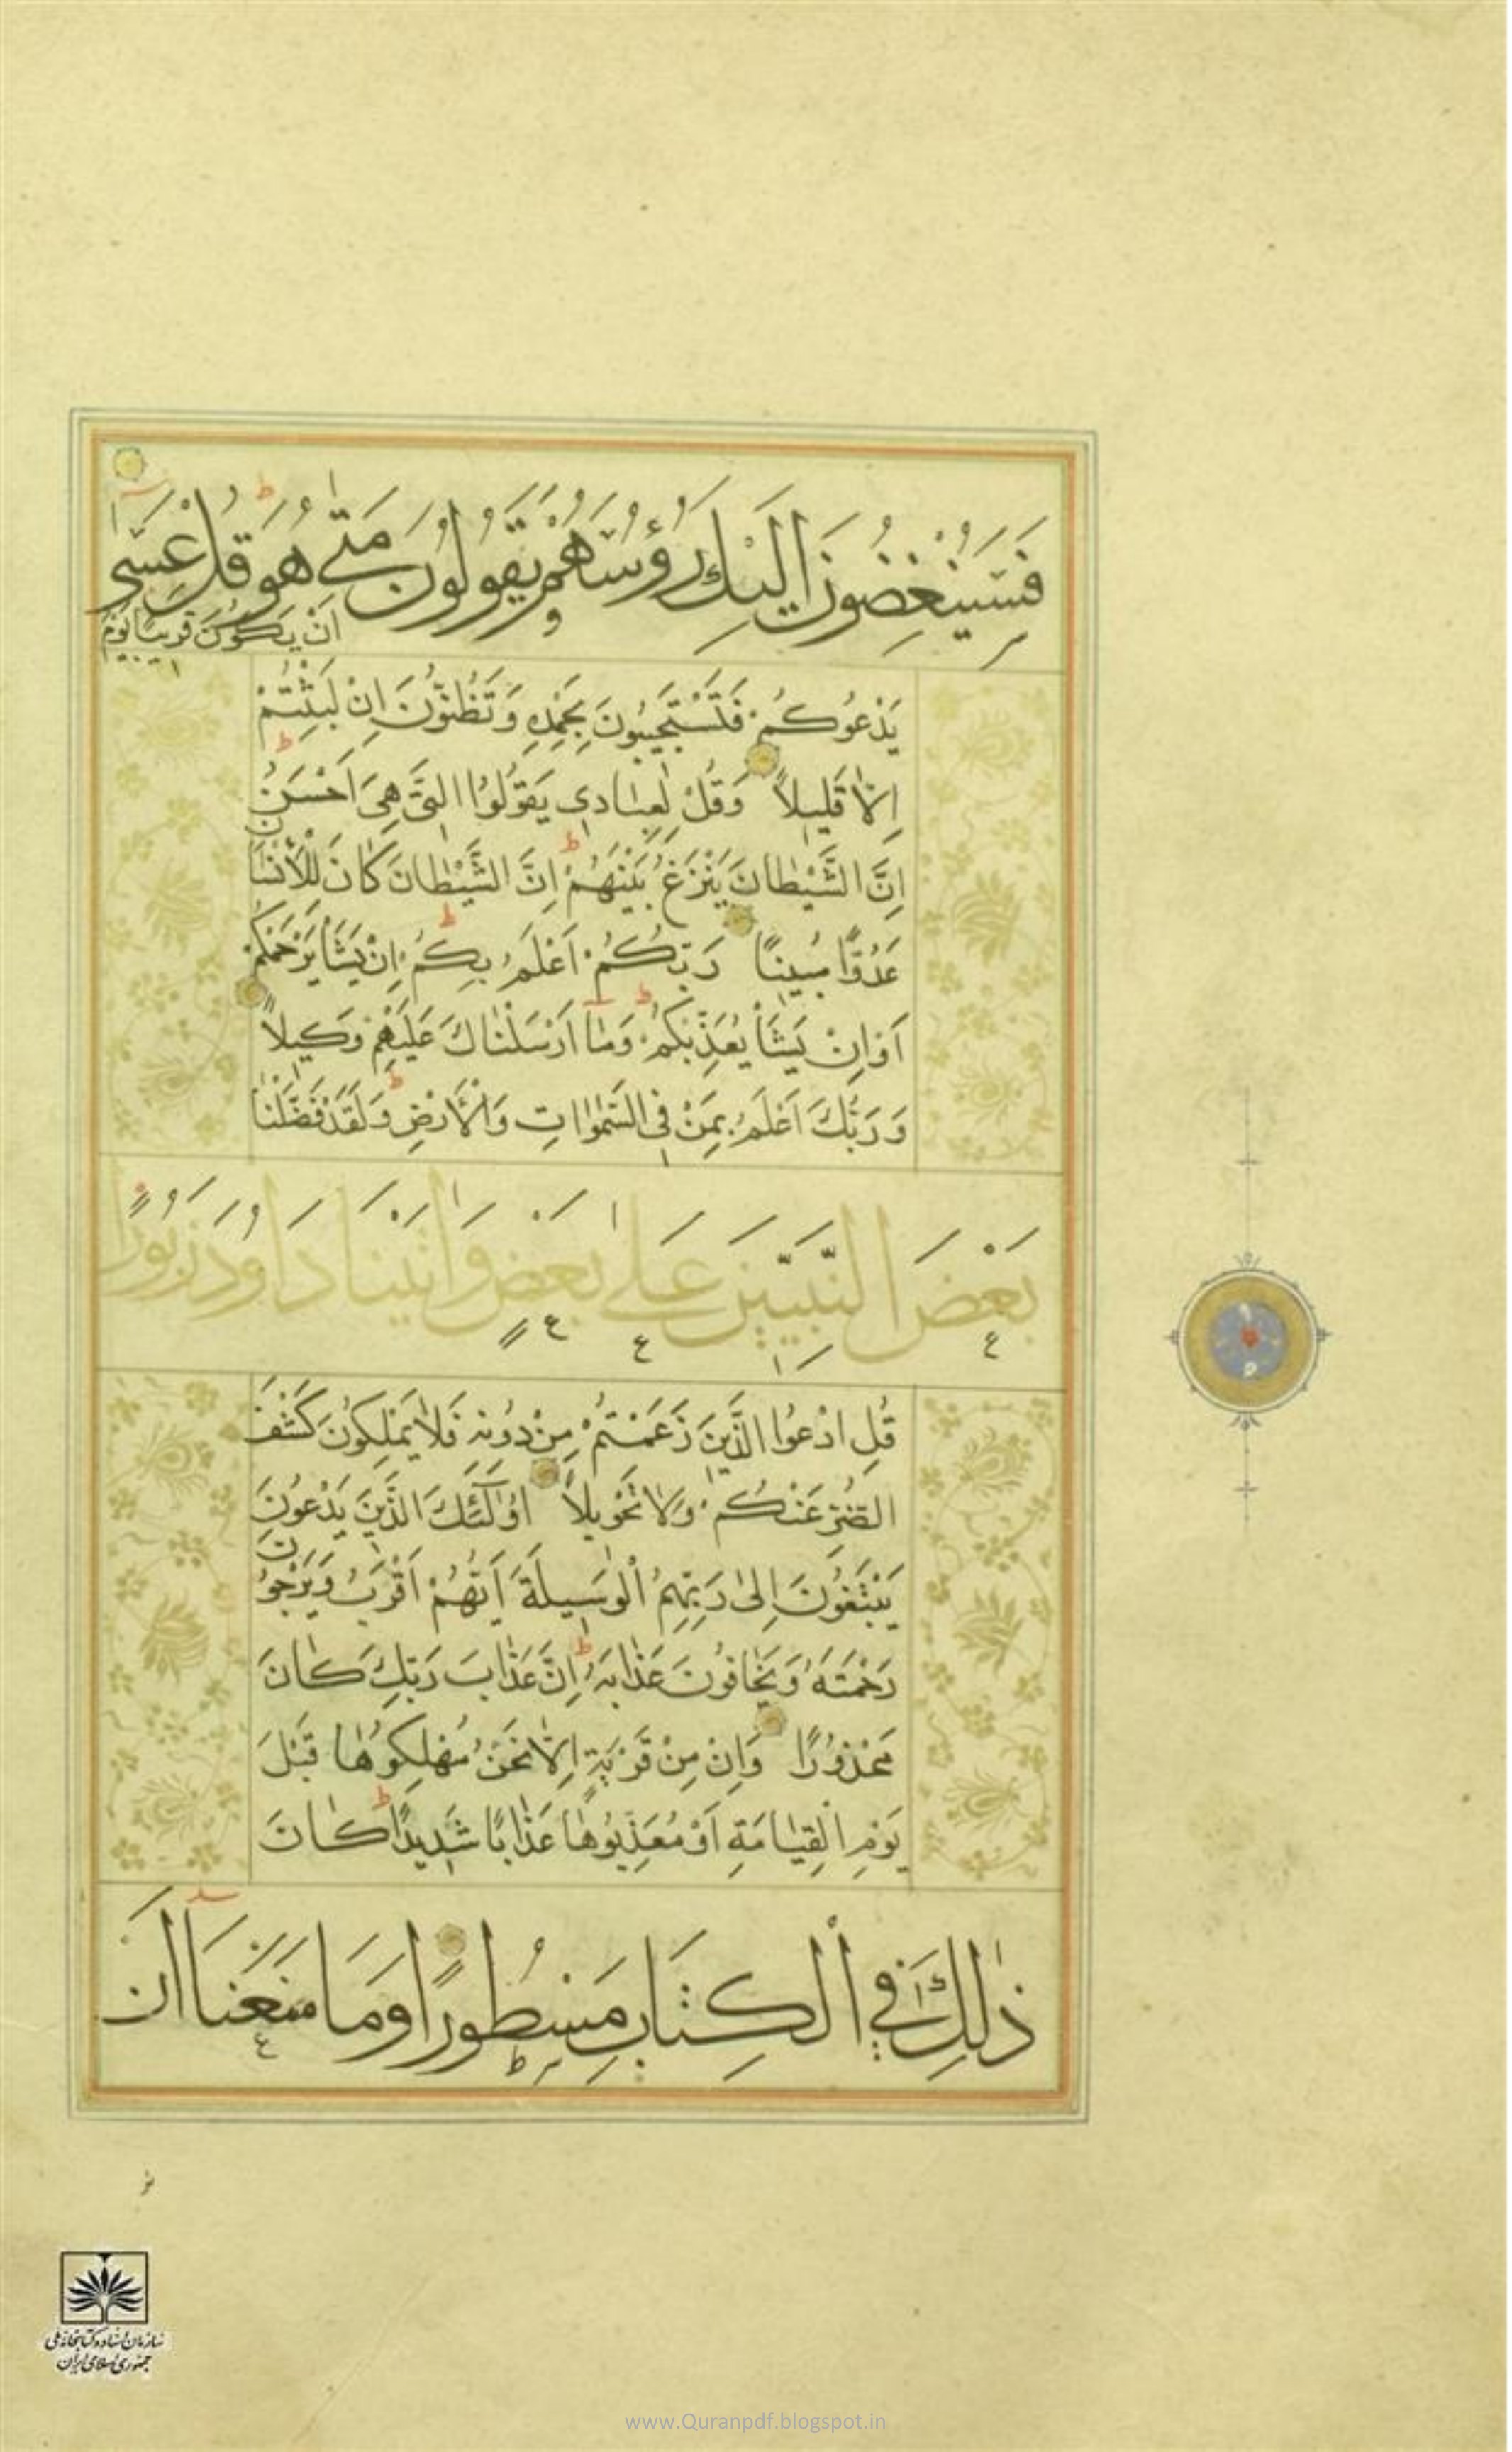 فَسَيُنْغِضُونَ اِلَيْكَ رُؤُسَهُمْ وَيَقُولُونَ مَتٰى هُوَ قُلْ عَسٰٓى
اَنْ يَكُونَ قَرِيبًا يَوْمَ
يَدْعُوكُمْ فَتَسْتَجِيبُونَ بِحَمْدِهِ وَتَظُنُّونَ اِنْ لَبِثْتُمْ
اِلَّا قَلِيلاً وَقُلْ لِعِبَادِى يَقُولُوا الَّتِى هِىَ اَحْسَنُ
اِنَّ الشَّيْطَانَ يَنْزَغُ بَيْنَهُمْ اِنَّ الشَّيْطَانَ كَانَ لِلْاِنْسَانِ
عَدُوًّا مُبِينًا رَبُّكُمْ اَعْلَمُ بِكُمْ اِنْ يَشَأْ يَرْحَمْكُمْ
اَوْ اِنْ يَشَأْ يُعَذِّبْكُمْ وَمَٓا اَرْسَلْنَاكَ عَلَيْهِمْ وَكِيلاً
وَرَبُّكَ اَعْلَمُ بِمَنْ فِى السَّمٰوَاتِ وَالْاَرْضِ وَلَقَدْ فَضَّلْنَا
بَعْضَ النَّبِيّٖنَ عَلٰى بَعْضٍ وَاٰتَيْنَا دَاوُدَ زَبُورًا
قُلِ ادْعُوا الَّذِينَ زَعَمْتُمْ مِنْ دُونِهِ فَلَا يَمْلِكُونَ كَشْفَ
الضُّرِّ عَنْكُمْ وَلَا تَحْوِيلاً اُولٰٓئِكَ الَّذِينَ يَدْعُونَ
يَبْتَغُونَ اِلٰى رَبِّهِمُ الْوَسِيلَةَ اَيُّهُمْ اَقْرَبُ وَيَرْجُونَ
رَحْمَتَهُ وَيَخَافُونَ عَذَابَهُ اِنَّ عَذَابَ رَبِّكَ كَانَ
مَحْذُورًا وَاِنْ مِنْ قَرْيَةٍ اِلَّا نَحْنُ مُهْلِكُوهَا قَبْلَ
يَوْمِ الْقِيَامَةِ اَوْ مُعَذِّبُوهَا عَذَابًا شَدِيدًا كَانَ
ذٰلِكَ فِى الْكِتَابِ مَسْطُورًا وَمَا مَنَعَنَٓا اَنْ
سازمان اسناد و کتابخانه ملی
جمهوری اسلامی ایران
www.Quranpdf.blogspot.in